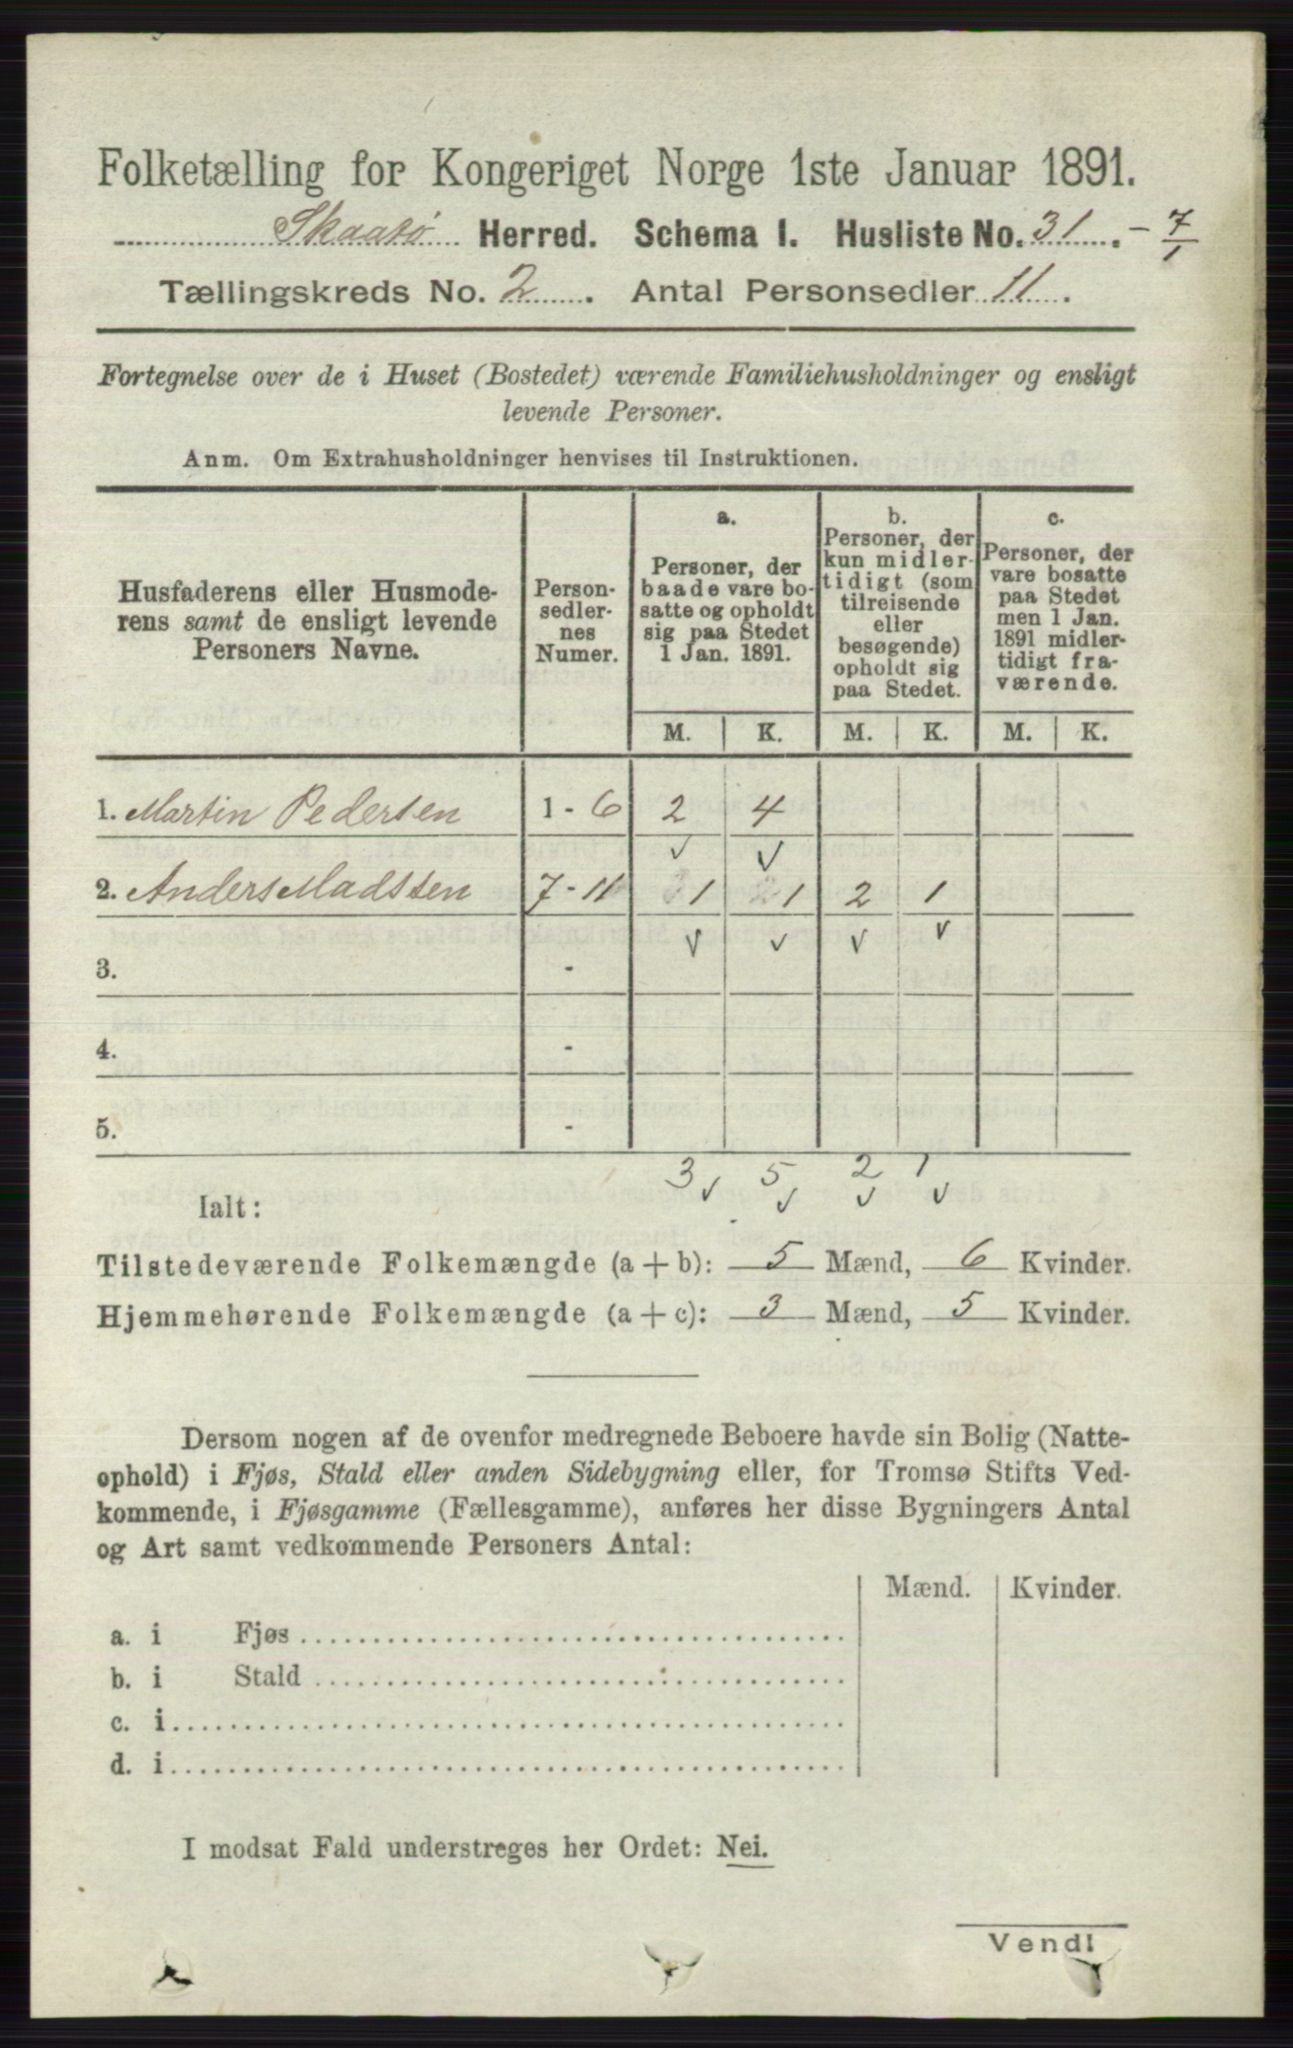 Folketælling for Kongeriget Norge 1ste Januar 1891.
Skaatø Herred. Schema I. Husliste No. 31. - 7/1
Tællingskreds No. 2. Antal Personsedler 11.
Fortegnelse over de i Huset (Bostedet) værende Familiehusholdninger og ensligt
levende Personer.
Anm. Om Extrahusholdninger henvises til Instruktionen.
Husfaderens eller Husmode-
rens samt de ensligt levende
Personers Navne.
Person-
sedler-
nes
Numer.
a.
Personer, der
baade vare bo-
satte og opholdt
sig paa Stedet
1 Jan. 1891.
b.
Personer, der
kun midler-
tidigt (som
tilreisende
eller
besøgende)
opholdt sig
paa Stedet.
c.
Personer, der
vare bosatte
paa Stedet
men 1 Jan.
1891 midler-
tidigt fra-
værende.
M. K. M. K. M. K.
1. Martin Pedersen 1 - 6 2 4
2. Anders Madssen 7 - 11 1 1 2 1
3. -
4. -
5. -
3 5 2 1
Ialt:
Tilstedeværende Folkemængde (a + b): 5 Mænd, 6 Kvinder.
Hjemmehørende Folkemængde (a + c): 3 Mænd, 5 Kvinder.
Dersom nogen af de ovenfor medregnede Beboere havde sin Bolig (Natte-
ophold) i Fjøs, Stald eller anden Sidebygning eller, for Tromsø Stifts Ved-
kommende, i Fjøsgamme (Fællesgamme), anføres her disse Bygningers Antal
og Art samt vedkommende Personers Antal:
Mænd. Kvinder.
a. i Fjøs
b. i Stald
c. i
d. i
I modsat Fald understreges her Ordet: Nei.
Vend!